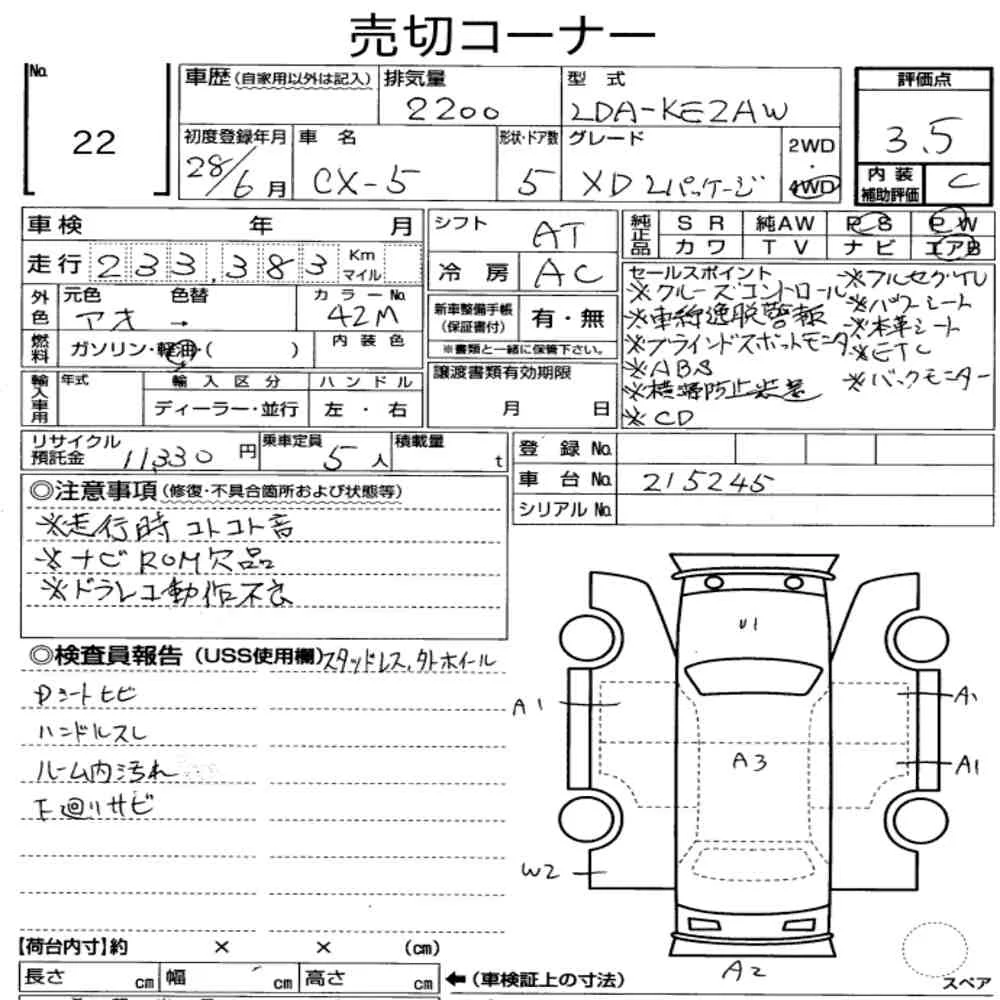 売切コーナー
No.
22
車歴(自家用以外は記入)
排気量
2200
型式
LDA-KE2AW
評価点
3.5
初度登録年月
28/6月
車名
CX-5
形状・ドア数
5
グレード
XD Lパッケージ
2WD
・
4WD
内装
補助評価
C
車検 年 月
シフト
AT
純正品
SR 純AW PS PW
カワ TV ナビ エアB
走行 233,383 Km
マイル
冷房
AC
セールスポイント
※クルーズ・コントロール
※車線逸脱警報
※ブラインドスポットモニタ
※ABS
※横滑防止装置
※CD
※フルセグTV
※パワーシート
※本革シート
※ETC
※バックモニター
外色
元色 色替
アオ →
カラーNo.
42M
新車整備手帳
(保証書付)
有・無
※書類と一緒に保管下さい。
燃料
ガソリン・軽油・( )
内装色
譲渡書類有効期限
月 日
輸入車用
年式
輸入区分
ディーラー・並行
ハンドル
左・右
リサイクル
預託金
11,330円
乗車定員
5人
積載量
t
登録No.
車台No.
215245
シリアルNo.
◎注意事項(修復・不具合箇所および状態等)
※走行時コトコト音
※ナビROM欠品
※ドラレコ動作不良
◎検査員報告(USS使用欄)スタッドレス,外ホイール
Dシートヒビ
ハンドルスレ
ルーム内汚れ
下廻りサビ
U1
A1
A1
A3
A1
W2
A2
スペア
【荷台内寸】約 × × (cm)
長さ cm 幅 cm 高さ cm
←(車検証上の寸法)